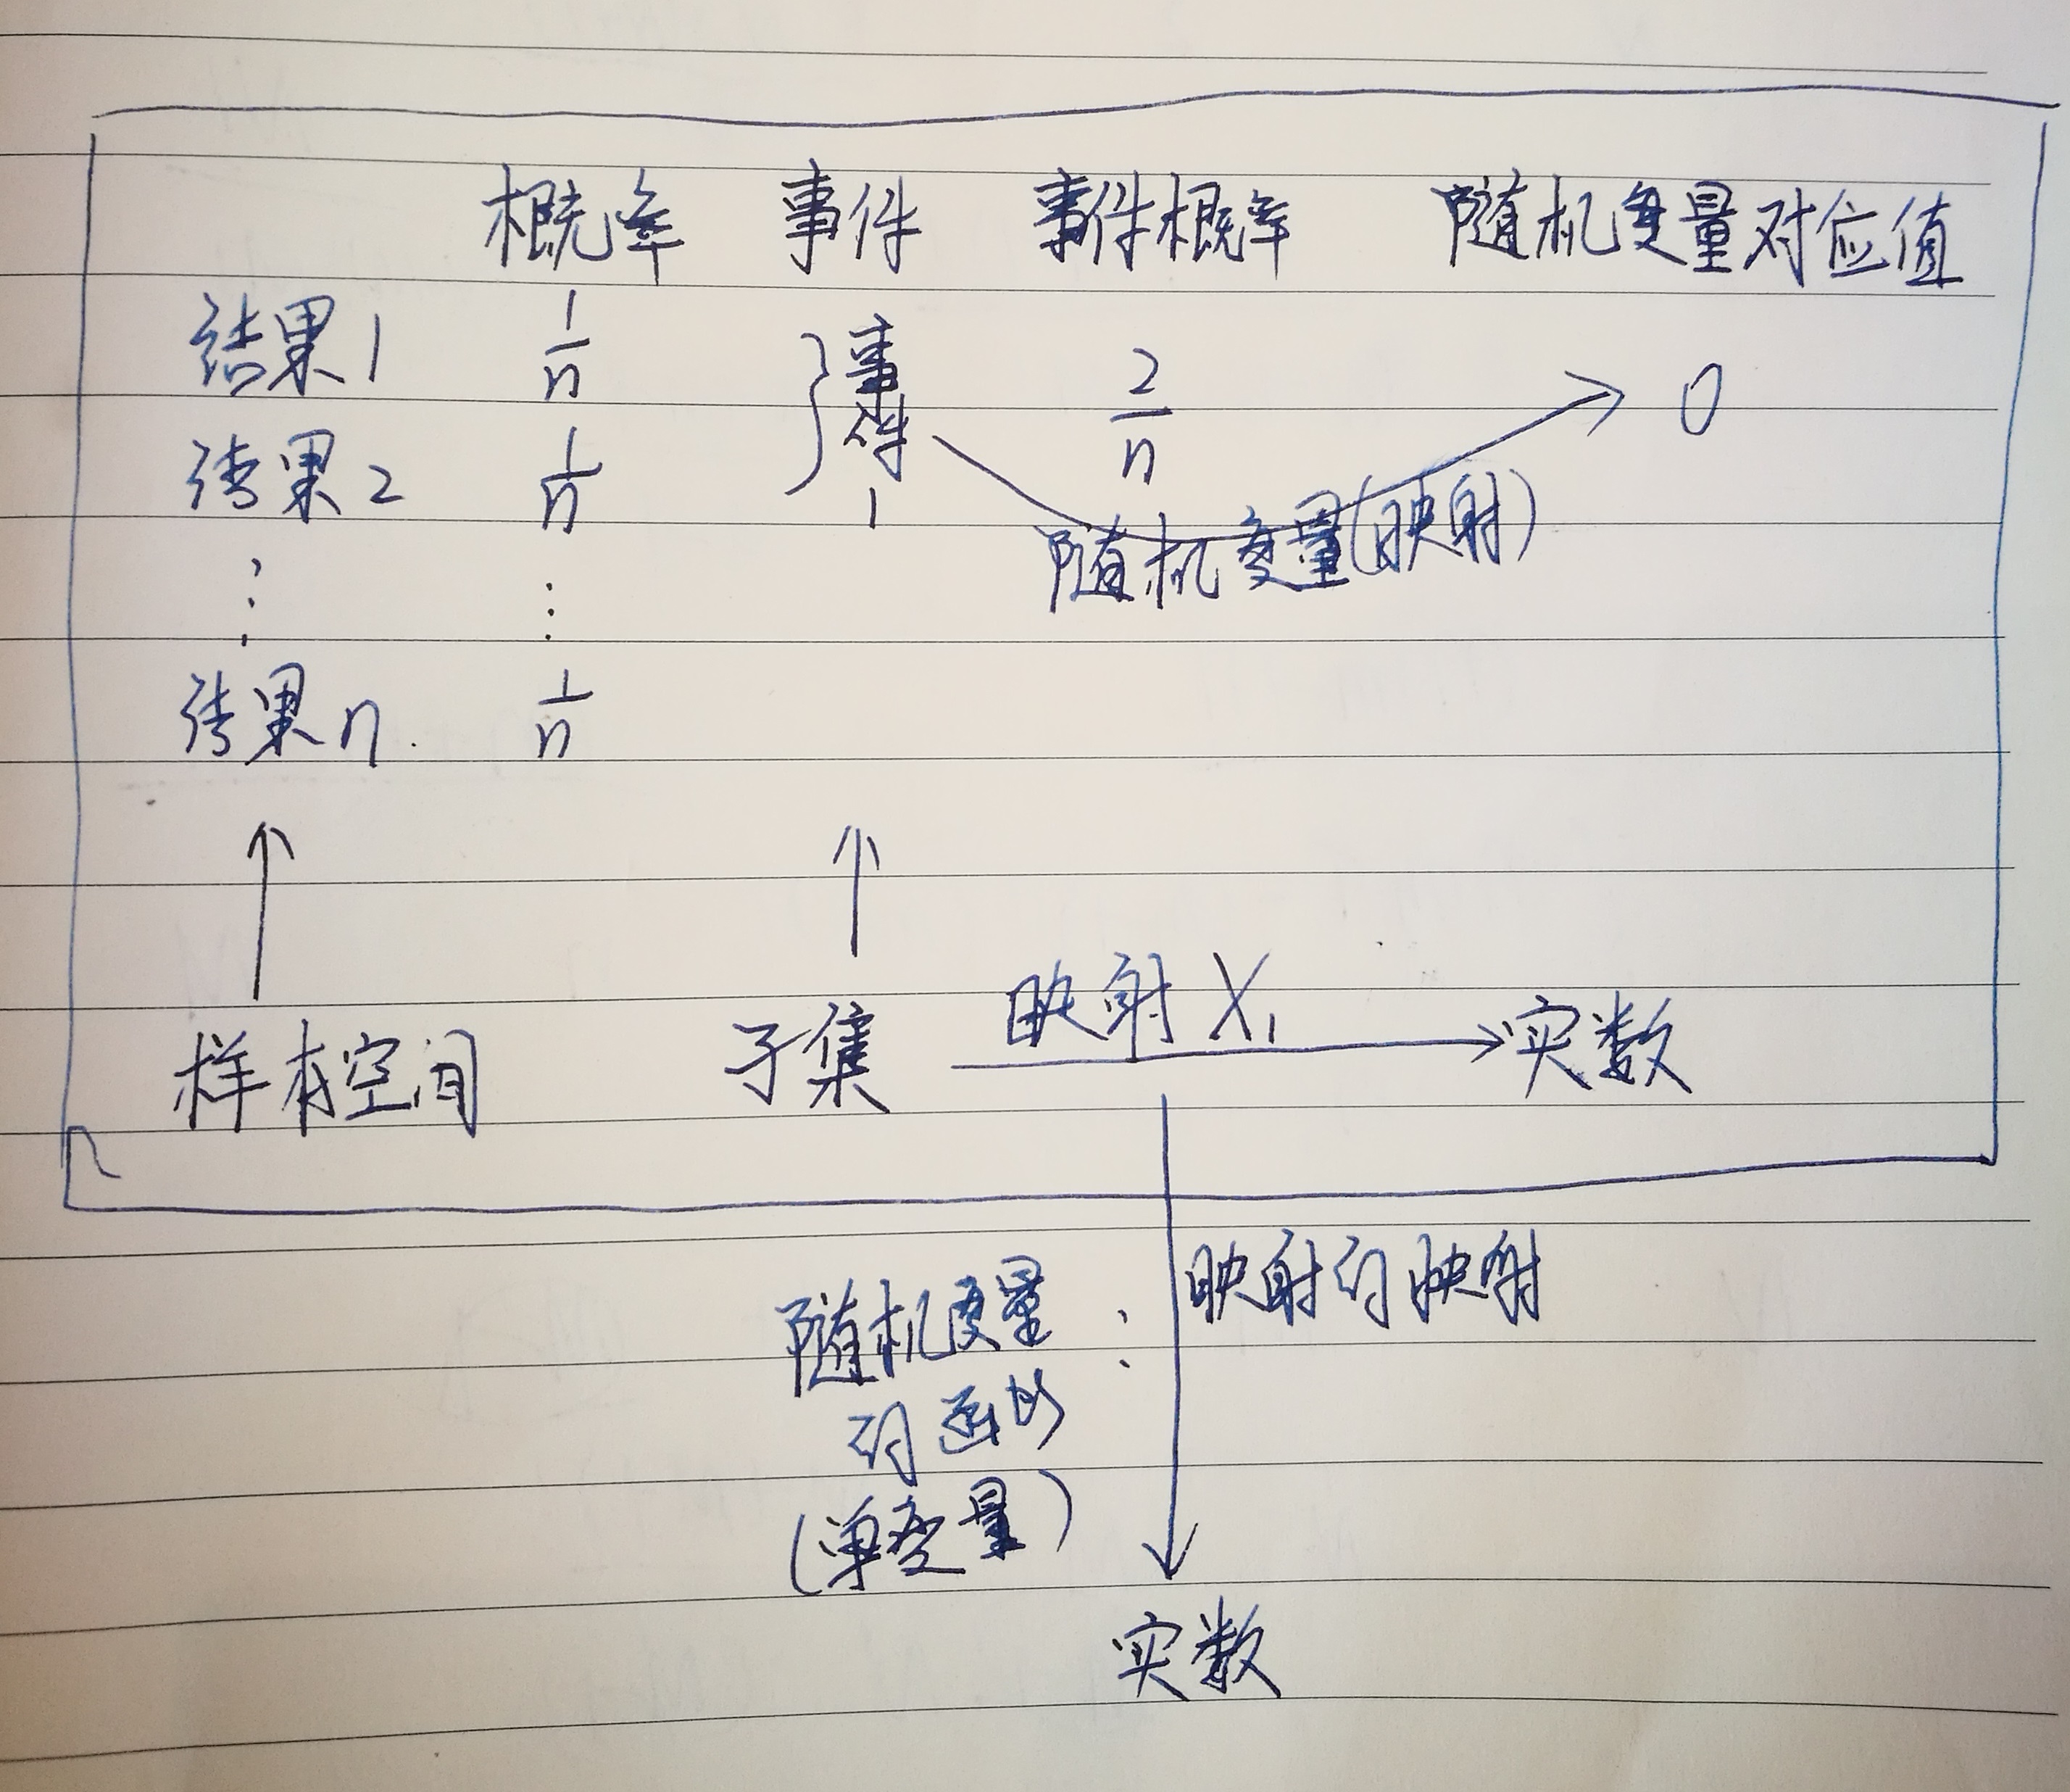 概率 事件 事件概率 随机变量对应值
结果1 1/n } 事件1 2/n 0
结果2 1/n
随机变量(映射)
⋮ ⋮
结果n. 1/n
映射 X₁
样本空间 子集 实数
随机变量 : 映射的映射
的函数
(单变量)
实数